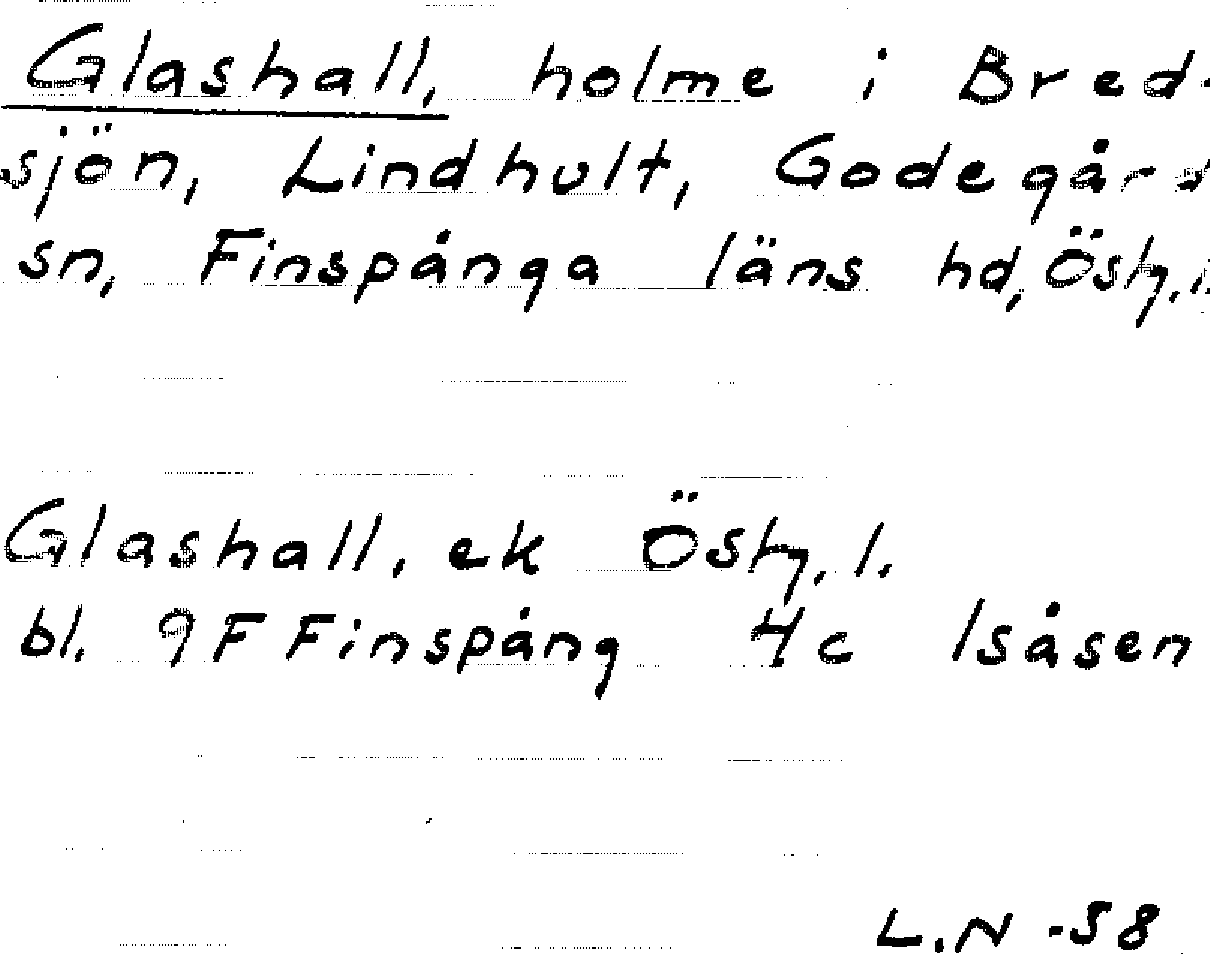 Glashall, holme i Bred-
sjön, Lindhult, Godegårds
sn, Finspånga läns hd, Östg. l.
Glashall, ek Östg. l.
bl. 9F Finspång 4c Isåsen
L.N -58